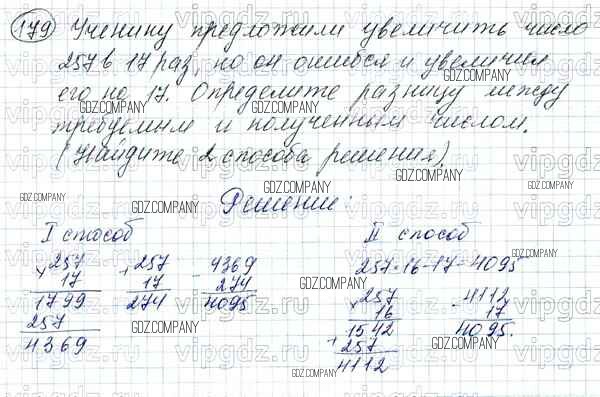 179 Ученику предложили увеличить число
257 в 17 раз, но он ошибся и увеличил
его на 17. Определите разницу между
требуемым и полученным числом.
(Найдите 2 способа решения).
Решение:
I способ
× 257
17
1799
257
4369
+ 257
17
274
- 4369
274
4095
II способ
257·16-17=4095
× 257
16
1542
+ 257
4112
- 4112
17
4095.
vipgdz.ru
GDZ.COMPANY